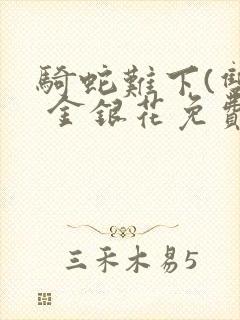 騎蛇難下(雙
金銀花免費
三禾木易5